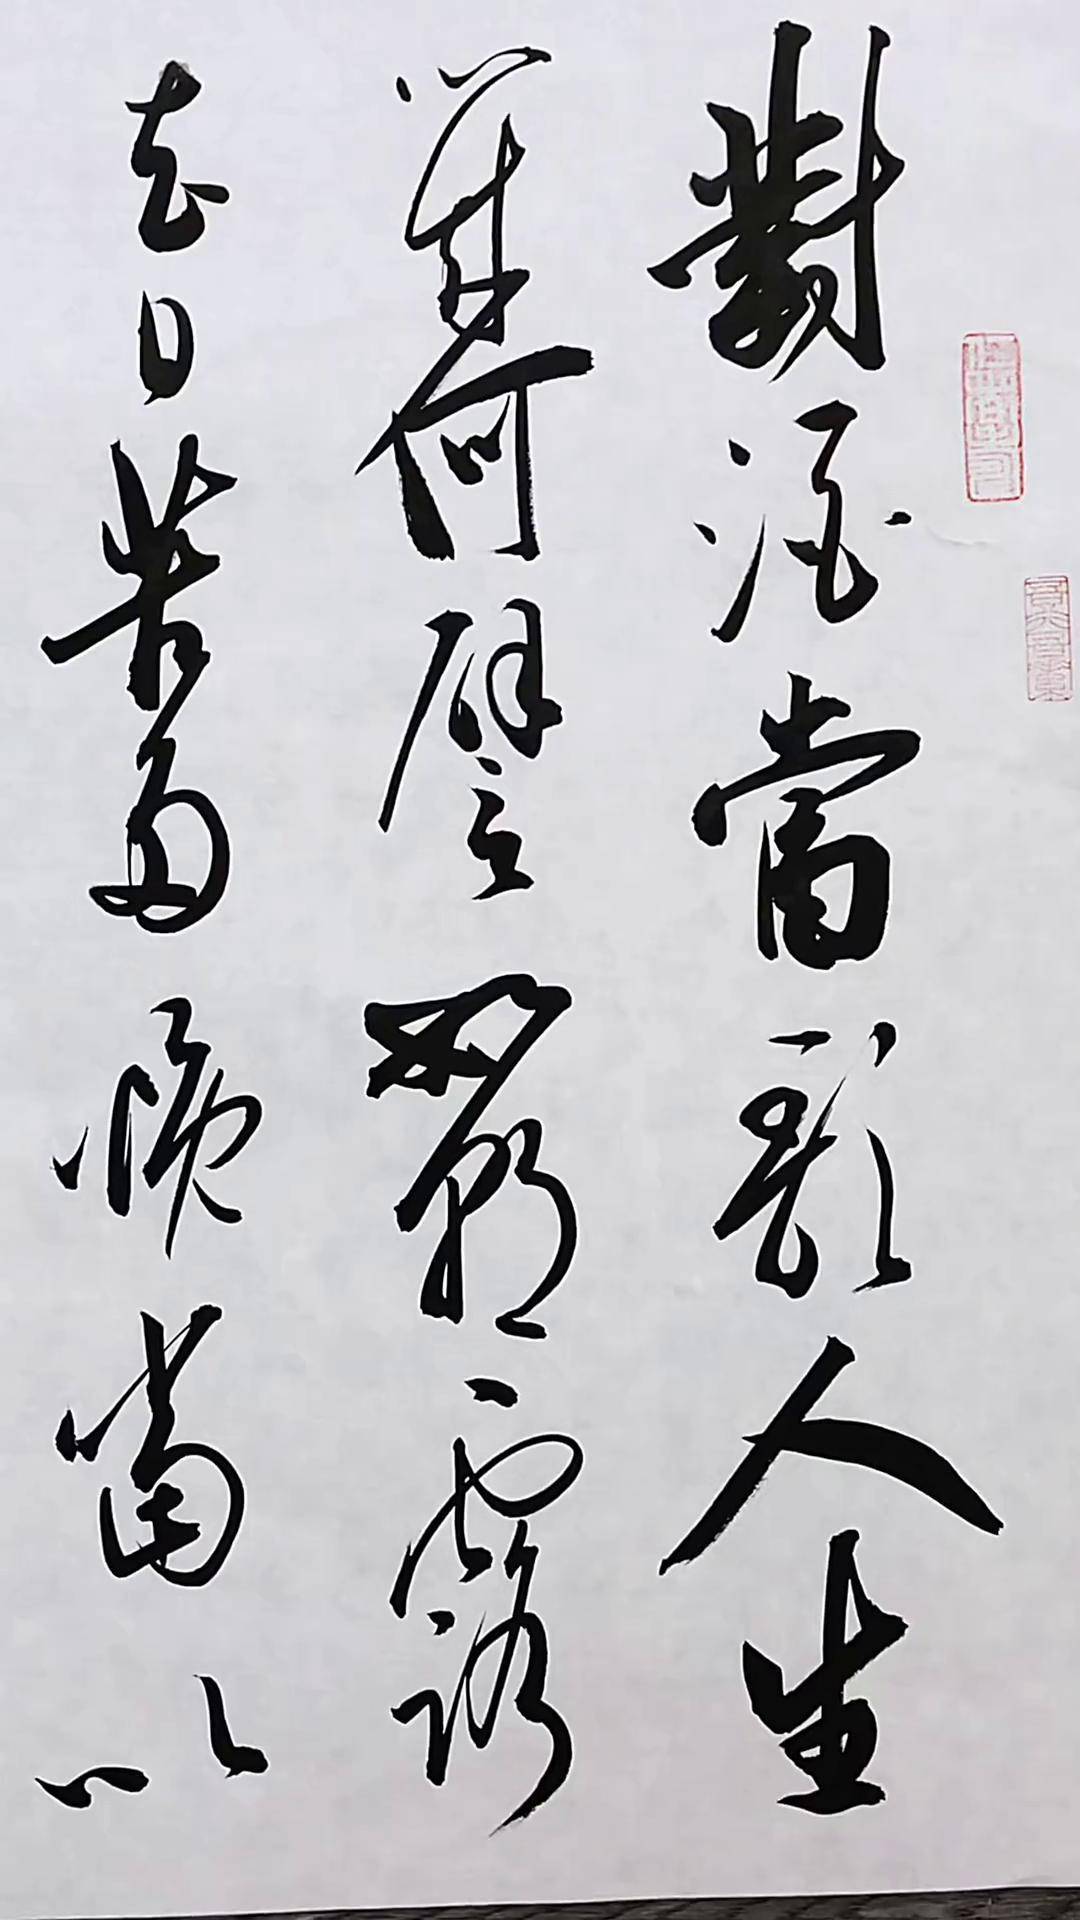 對酒當歌人生
幾何譬如朝露
去日苦多慨當以